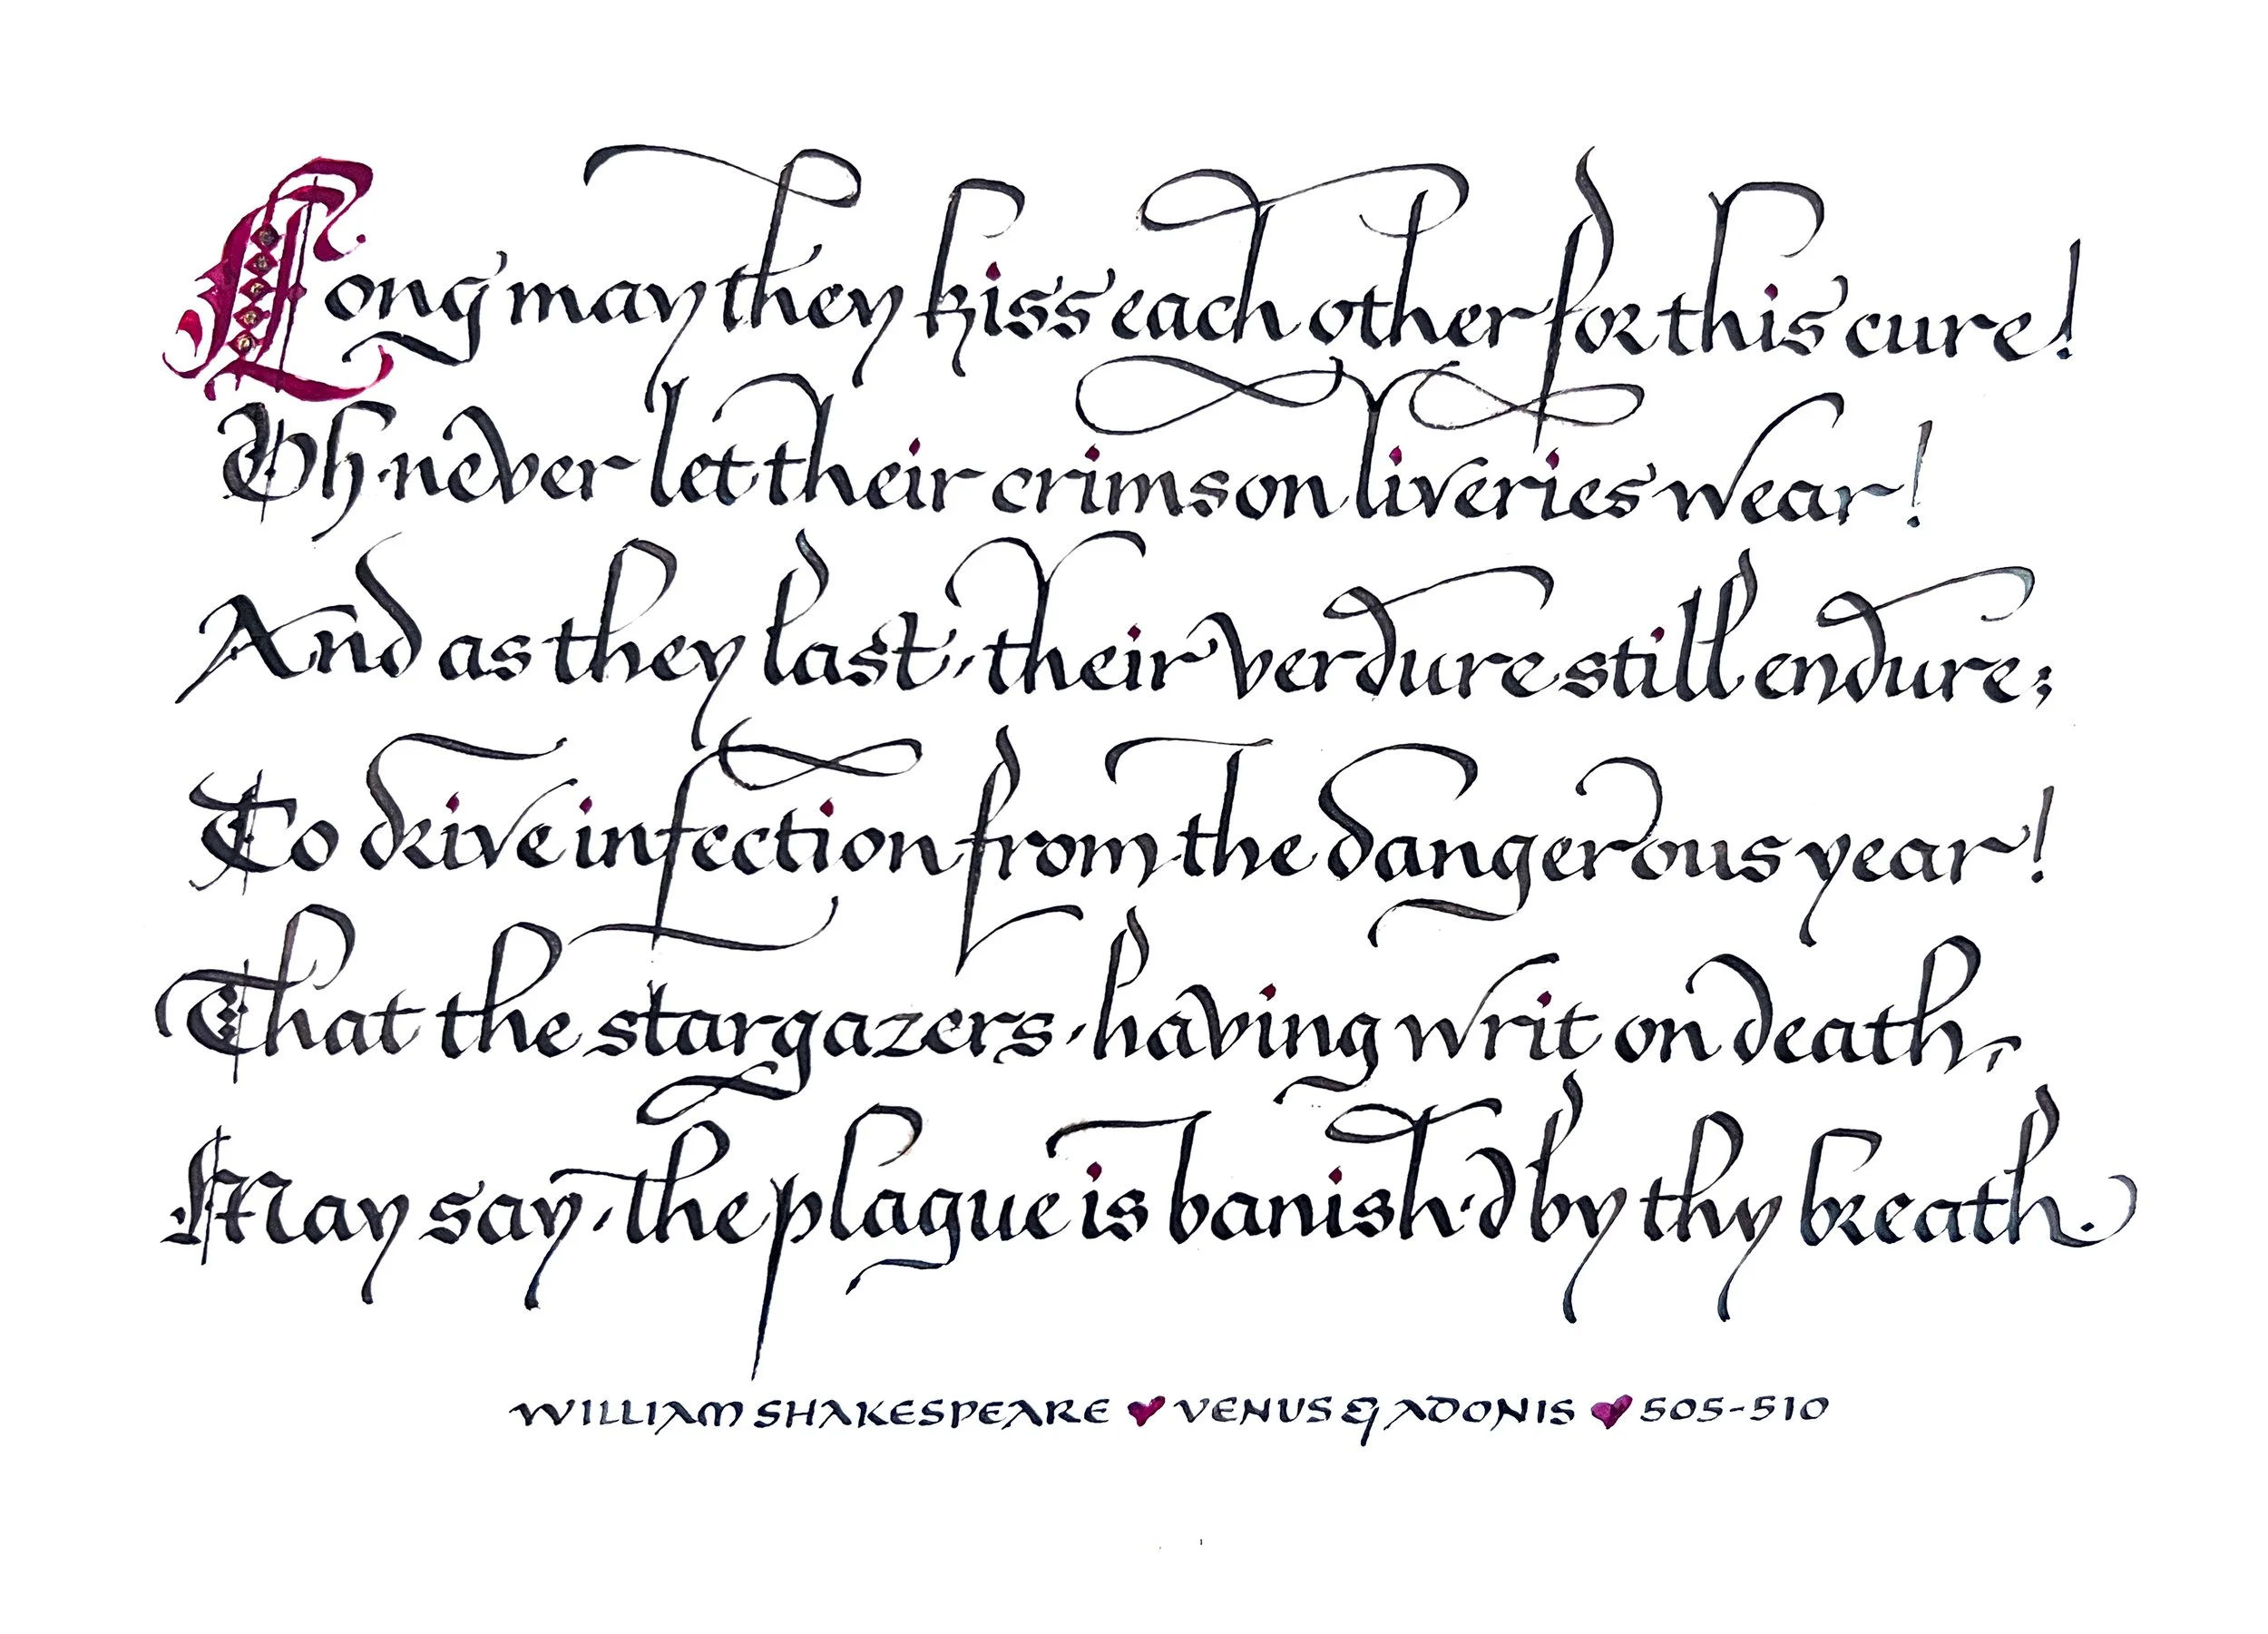 Long may they kiss each other for this cure!
Oh·never let their crimson liveries wear!
And as they last, their verdure still endure;
To drive infection from the dangerous year!
That the stargazers, having writ on death,
May say, the plague is banish·d by thy breath.
WILLIAM SHAKESPEARE ♥ VENUS & ADONIS ♥ 505-510